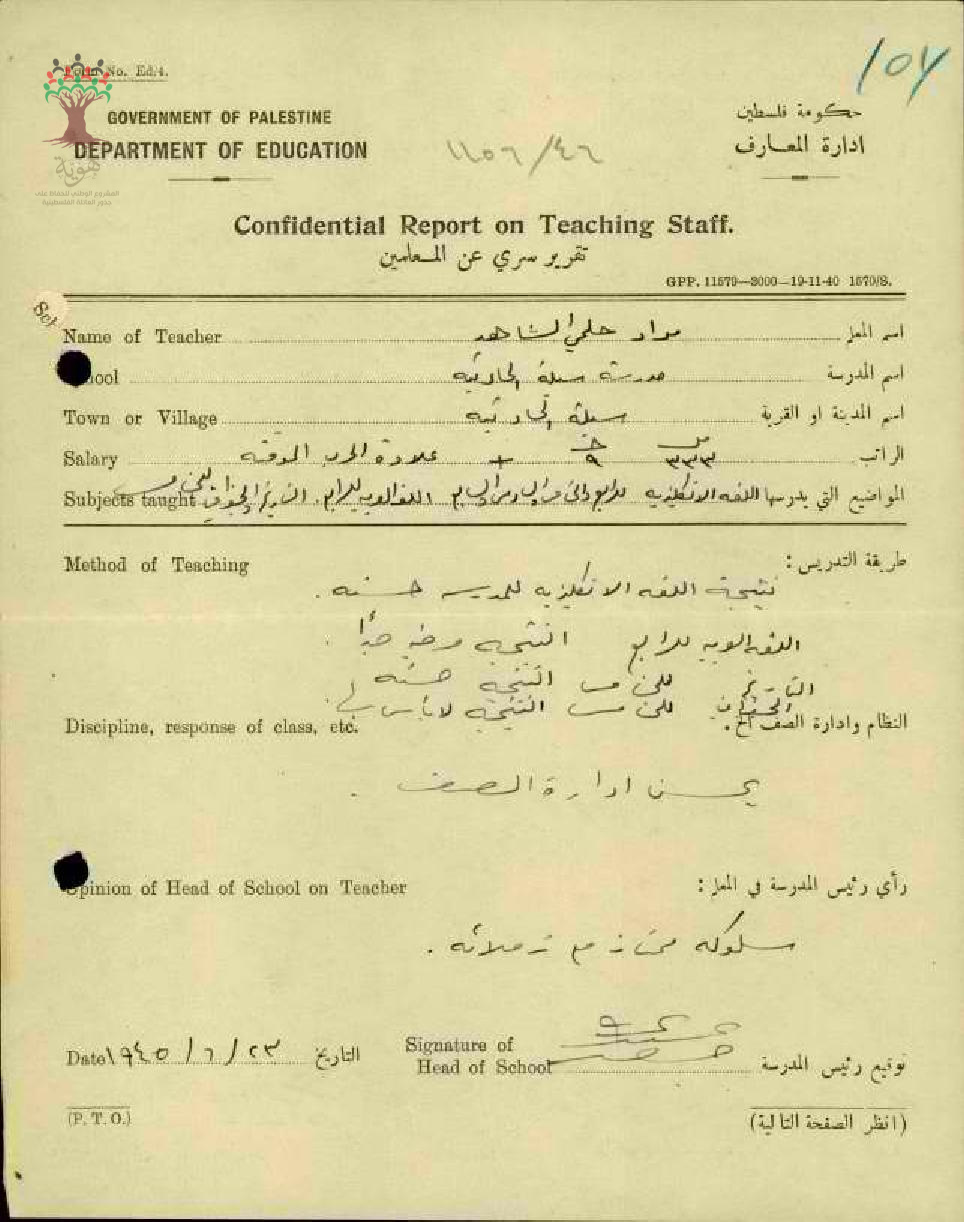 Form No. Ed/4.
104
GOVERNMENT OF PALESTINE
حكومة فلسطين
DEPARTMENT OF EDUCATION
ادارة المعارف
١١٥٦/٤٦
هوية
المشروع الوطني للحفاظ على
جذور العائلة الفلسطينية
Confidential Report on Teaching Staff.
تقرير سري عن المعلمين
GPP. 11579—3000—19-11-40 1570/S.
Name of Teacher مراد حلمي الشاهد اسم المعلم
School مدرسة سيلة الحارثية اسم المدرسة
Town or Village سيلة الحارثية اسم المدينة او القرية
Salary ٣٣٣ ٩ + علاوة الحرب المؤقتة الراتب
Subjects taught المواضيع التي يدرسها اللغة الانكليزية للرابع والخامس والسادس والسابع اللغة العربية للرابع. التاريخ والجغرافيا للخامس
Method of Teaching طريقة التدريس:
نتيجة اللغة الانكليزية للمدرسة حسنة.
اللغة العربية للرابع النتيجة مرضية جداً.
التاريخ للخامس النتيجة حسنة
الجغرافيا للخامس النتيجة لا بأس بها.
Discipline, response of class, etc. النظام وادارة الصف الخ.
يحسن ادارة الصف.
Opinion of Head of School on Teacher رأي رئيس المدرسة في المعلم:
سلوكه ممتاز مع زملائه.
Date ٢٣/٦/١٩٤٥ التاريخ
Signature of
Head of School توقيع رئيس المدرسة
(P. T. O.)
(انظر الصفحة التالية)